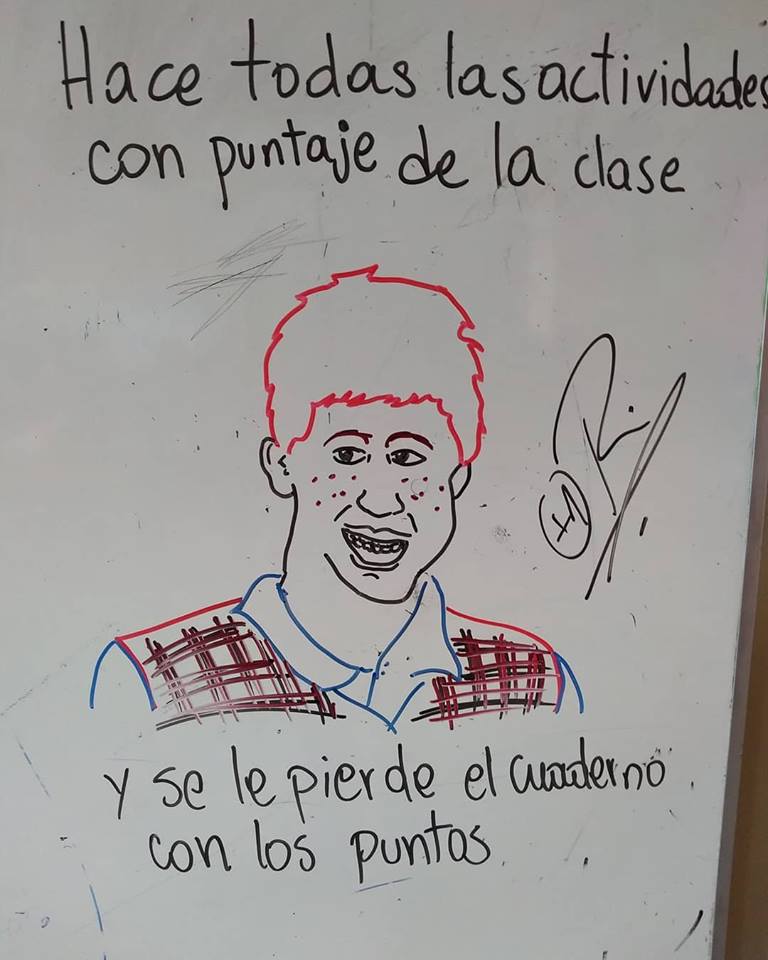 Hace todas las actividades
con puntaje de la clase
+1
y se le pierde el cuaderno
con los puntos